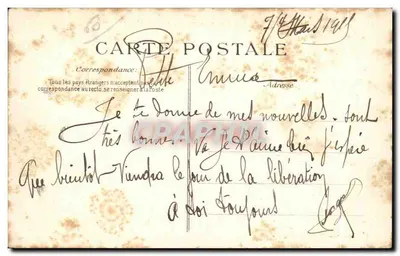 7/4 Mars 1915
CARTE POSTALE
Correspondance:
Tous les pays étrangers n'acceptent pas
correspondance au recto, se renseigner à la poste
Adresse
Petite Emma
Je te donne de mes nouvelles. sont
très bonnes. Va Je t'aime bien j'espère
Que bientôt Viendra le jour de la libération
à toi toujours